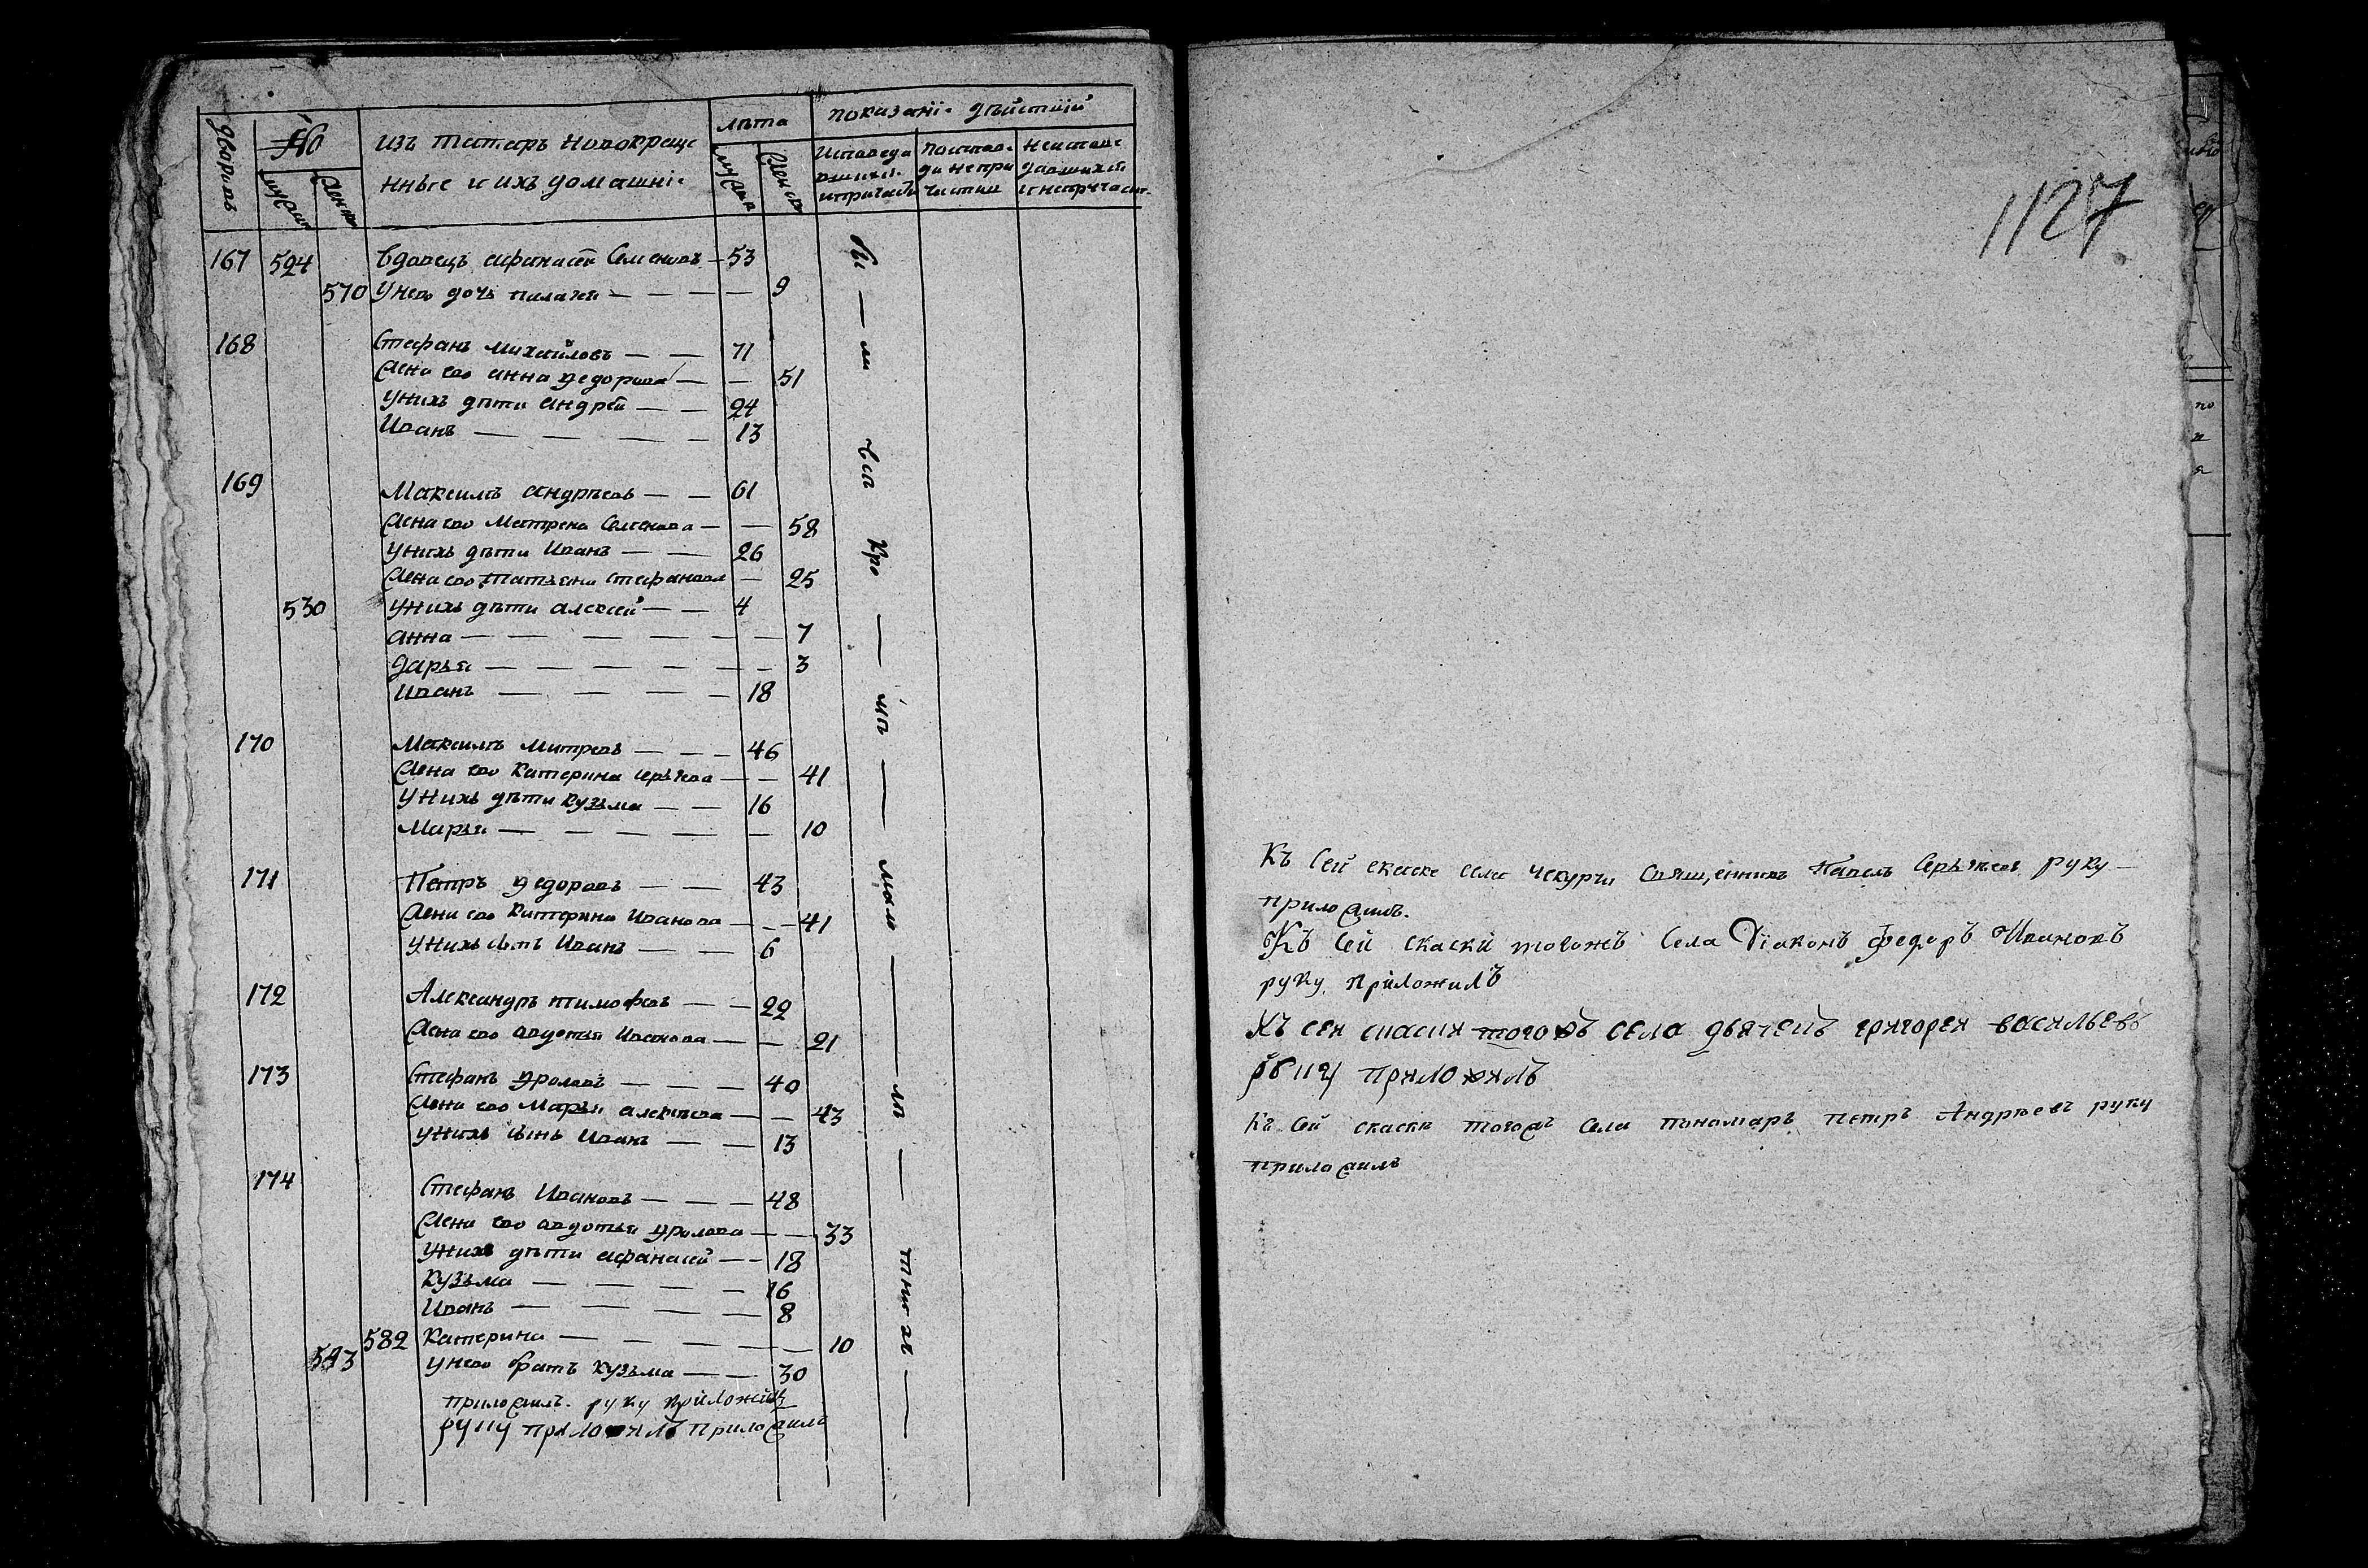 № лѣта показанiе дѣйствiй
дворовъ
изъ татаръ новокреще
нные и ихъ домашнiе
мужеска женска
167 524 вдовецъ афанасей Семеновъ 53
570 у него дочь пилагея 9
168 Стефанъ михайловъ 71
Жена ево анна федорова 51
у нихъ дѣти андрей 24
Иванъ 13
169 Максимъ андрѣевъ 61
Жена ево Матрена Семенова 58
у нихъ дѣти Иванъ 26
Жена ево татьяна стефанова 25
530 у нихъ дѣти алексей 4
анна 7
дарья 3
иванъ 18
170 Максимъ митревъ 46
Жена ево катерина сергѣева 41
у нихъ дѣти кузьма 16
Марья 10
171 Петръ федоровъ 43
Жена ево катерина иванова 41
у нихъ сынъ Иванъ 6
172 Александръ тимофевъ 22
Жена ево авдотья Иванова 21
173 Стефанъ фроловъ 40
Жена ево Марья алексѣева 43
у нихъ сынъ Иванъ 13
174 Стефанъ Ивановъ 48
Жена ево авдотья фролова 33
у нихъ дѣти афанасей 18
кузьма 16
Иванъ 8
582 катерина 10
543 у нево братъ кузьма 30
приложилъ. руку приложилъ
руку приложилъ приложилъ
1127
Къ сей скаске села чекурчи священникъ Павелъ Сергѣевъ руку
приложилъ.
Къ сей скаски тогожъ Села Дiаконъ федоръ Ивановъ
руку приложилъ
Къ сей скаски тогожъ села дьячекъ григорей васильевъ
руку приложилъ
Къ сей скаски тогожъ села пономарь петръ Андрѣевъ руку
приложилъ